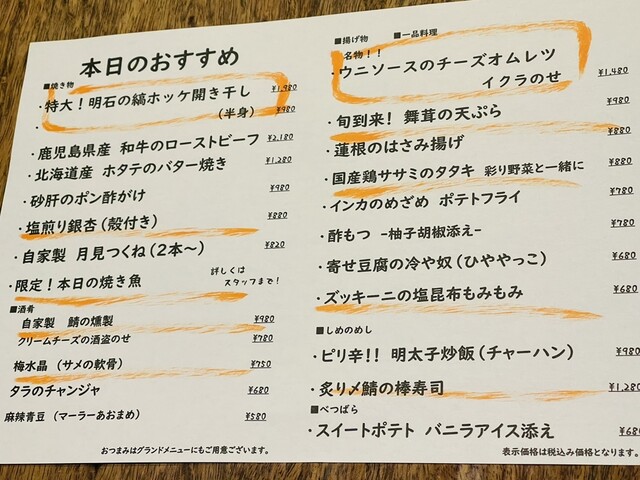 本日のおすすめ
■焼き物
・特大！明石の縞ホッケ開き干し ¥1,980
・ （半身） ¥980
・鹿児島県産 和牛のローストビーフ ¥2,180
・北海道産 ホタテのバター焼き ¥1,280
・砂肝のポン酢がけ ¥980
・塩煎り銀杏（殻付き） ¥880
・自家製 月見つくね（2本〜） ¥820
・限定！本日の焼き魚 詳しくは
スタッフまで！
■酒肴
自家製 鯖の燻製 ¥980
クリームチーズの酒盗のせ ¥780
梅水晶（サメの軟骨） ¥750
タラのチャンジャ ¥680
麻辣青豆（マーラーあおまめ） ¥580
おつまみはグランドメニューにもご用意ございます。
■揚げ物 ■一品料理
名物！！
・ウニソースのチーズオムレツ
イクラのせ ¥1,480
・旬到来！舞茸の天ぷら ¥980
・蓮根のはさみ揚げ ¥880
・国産鶏ササミのタタキ 彩り野菜と一緒に ¥880
・インカのめざめ ポテトフライ ¥780
・酢もつ -柚子胡椒添え- ¥780
・寄せ豆腐の冷や奴（ひややっこ） ¥680
・ズッキーニの塩昆布もみもみ ¥680
■しめのめし
・ピリ辛！！明太子炒飯（チャーハン） ¥980
・炙り〆鯖の棒寿司 ¥1,280
■べつばら
・スイートポテト バニラアイス添え ¥680
表示価格は税込み価格となります。